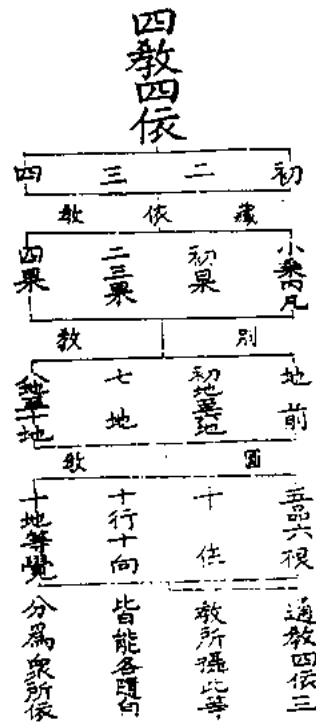 四教四依
初
二
三
四
藏依教
小乘內凡
初果
二三果
四果
別教
地前
初地
七地
八地至十地
圓教
五品六根
十住
十行十向
十地等覺
通教四依三
教所攝此等
皆能各隨自
分為眾所依